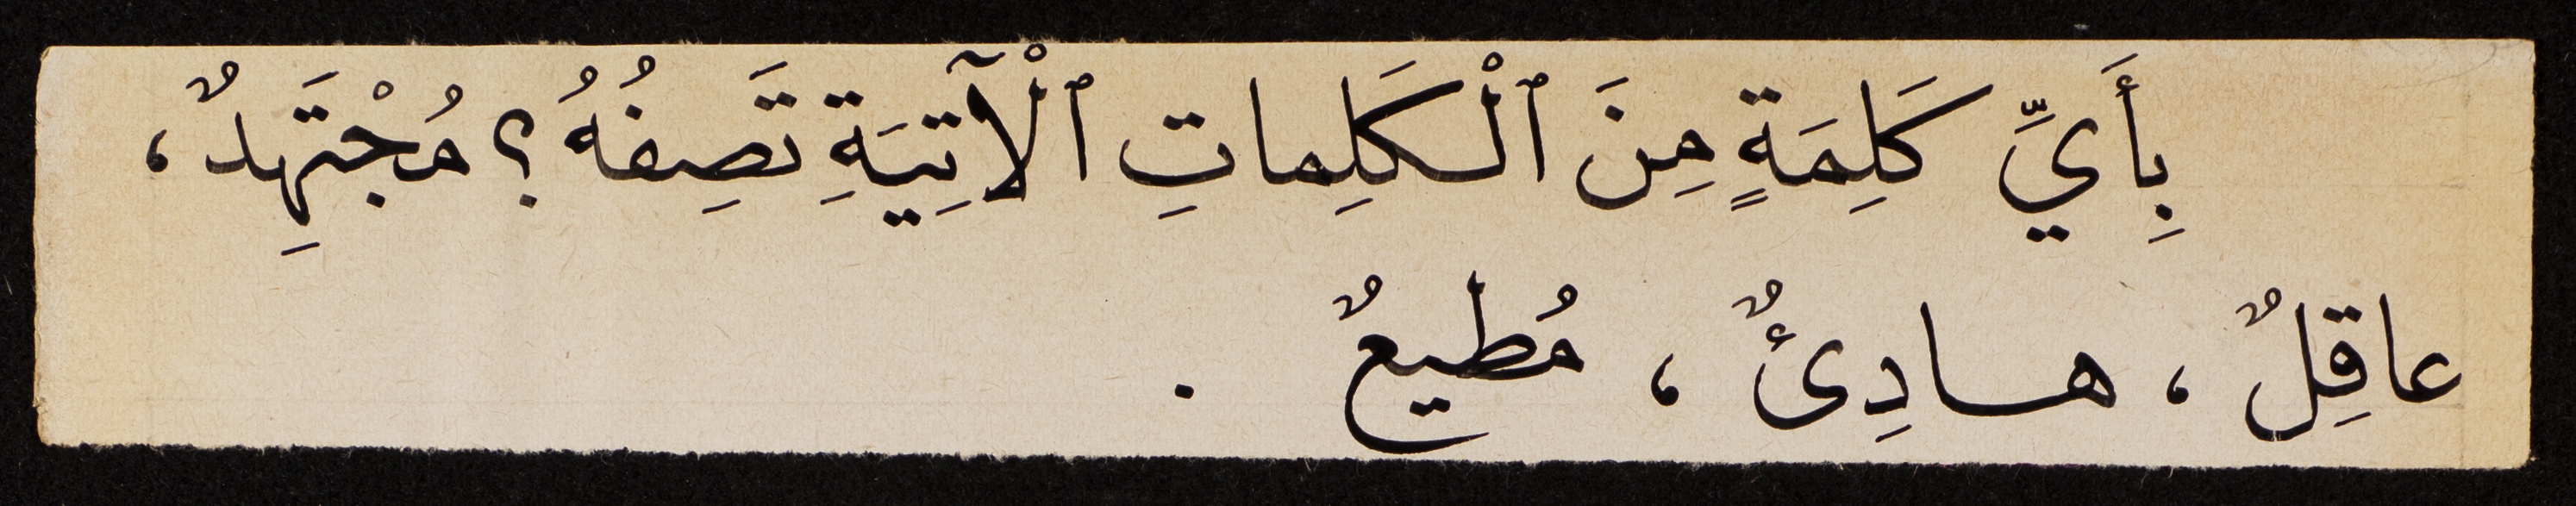 بِأَيِّ كَلِمَةٍ مِنَ ٱلْكَلِماتِ ٱلْآتِيَةِ تَصِفُهُ؟ مُجْتَهِدٌ،
عاقِلٌ، هادِئٌ، مُطيعٌ.